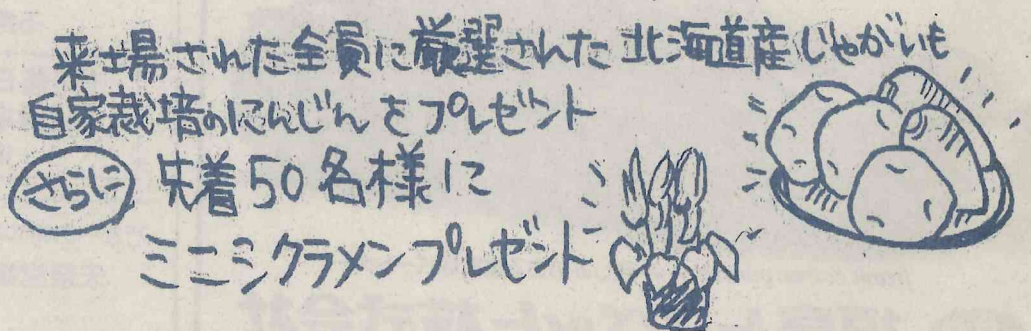 来場された全員に厳選された北海道産じゃがいも
自家栽培のにんじんをプレゼント
さらに 先着50名様に
ミニシクラメンプレゼント